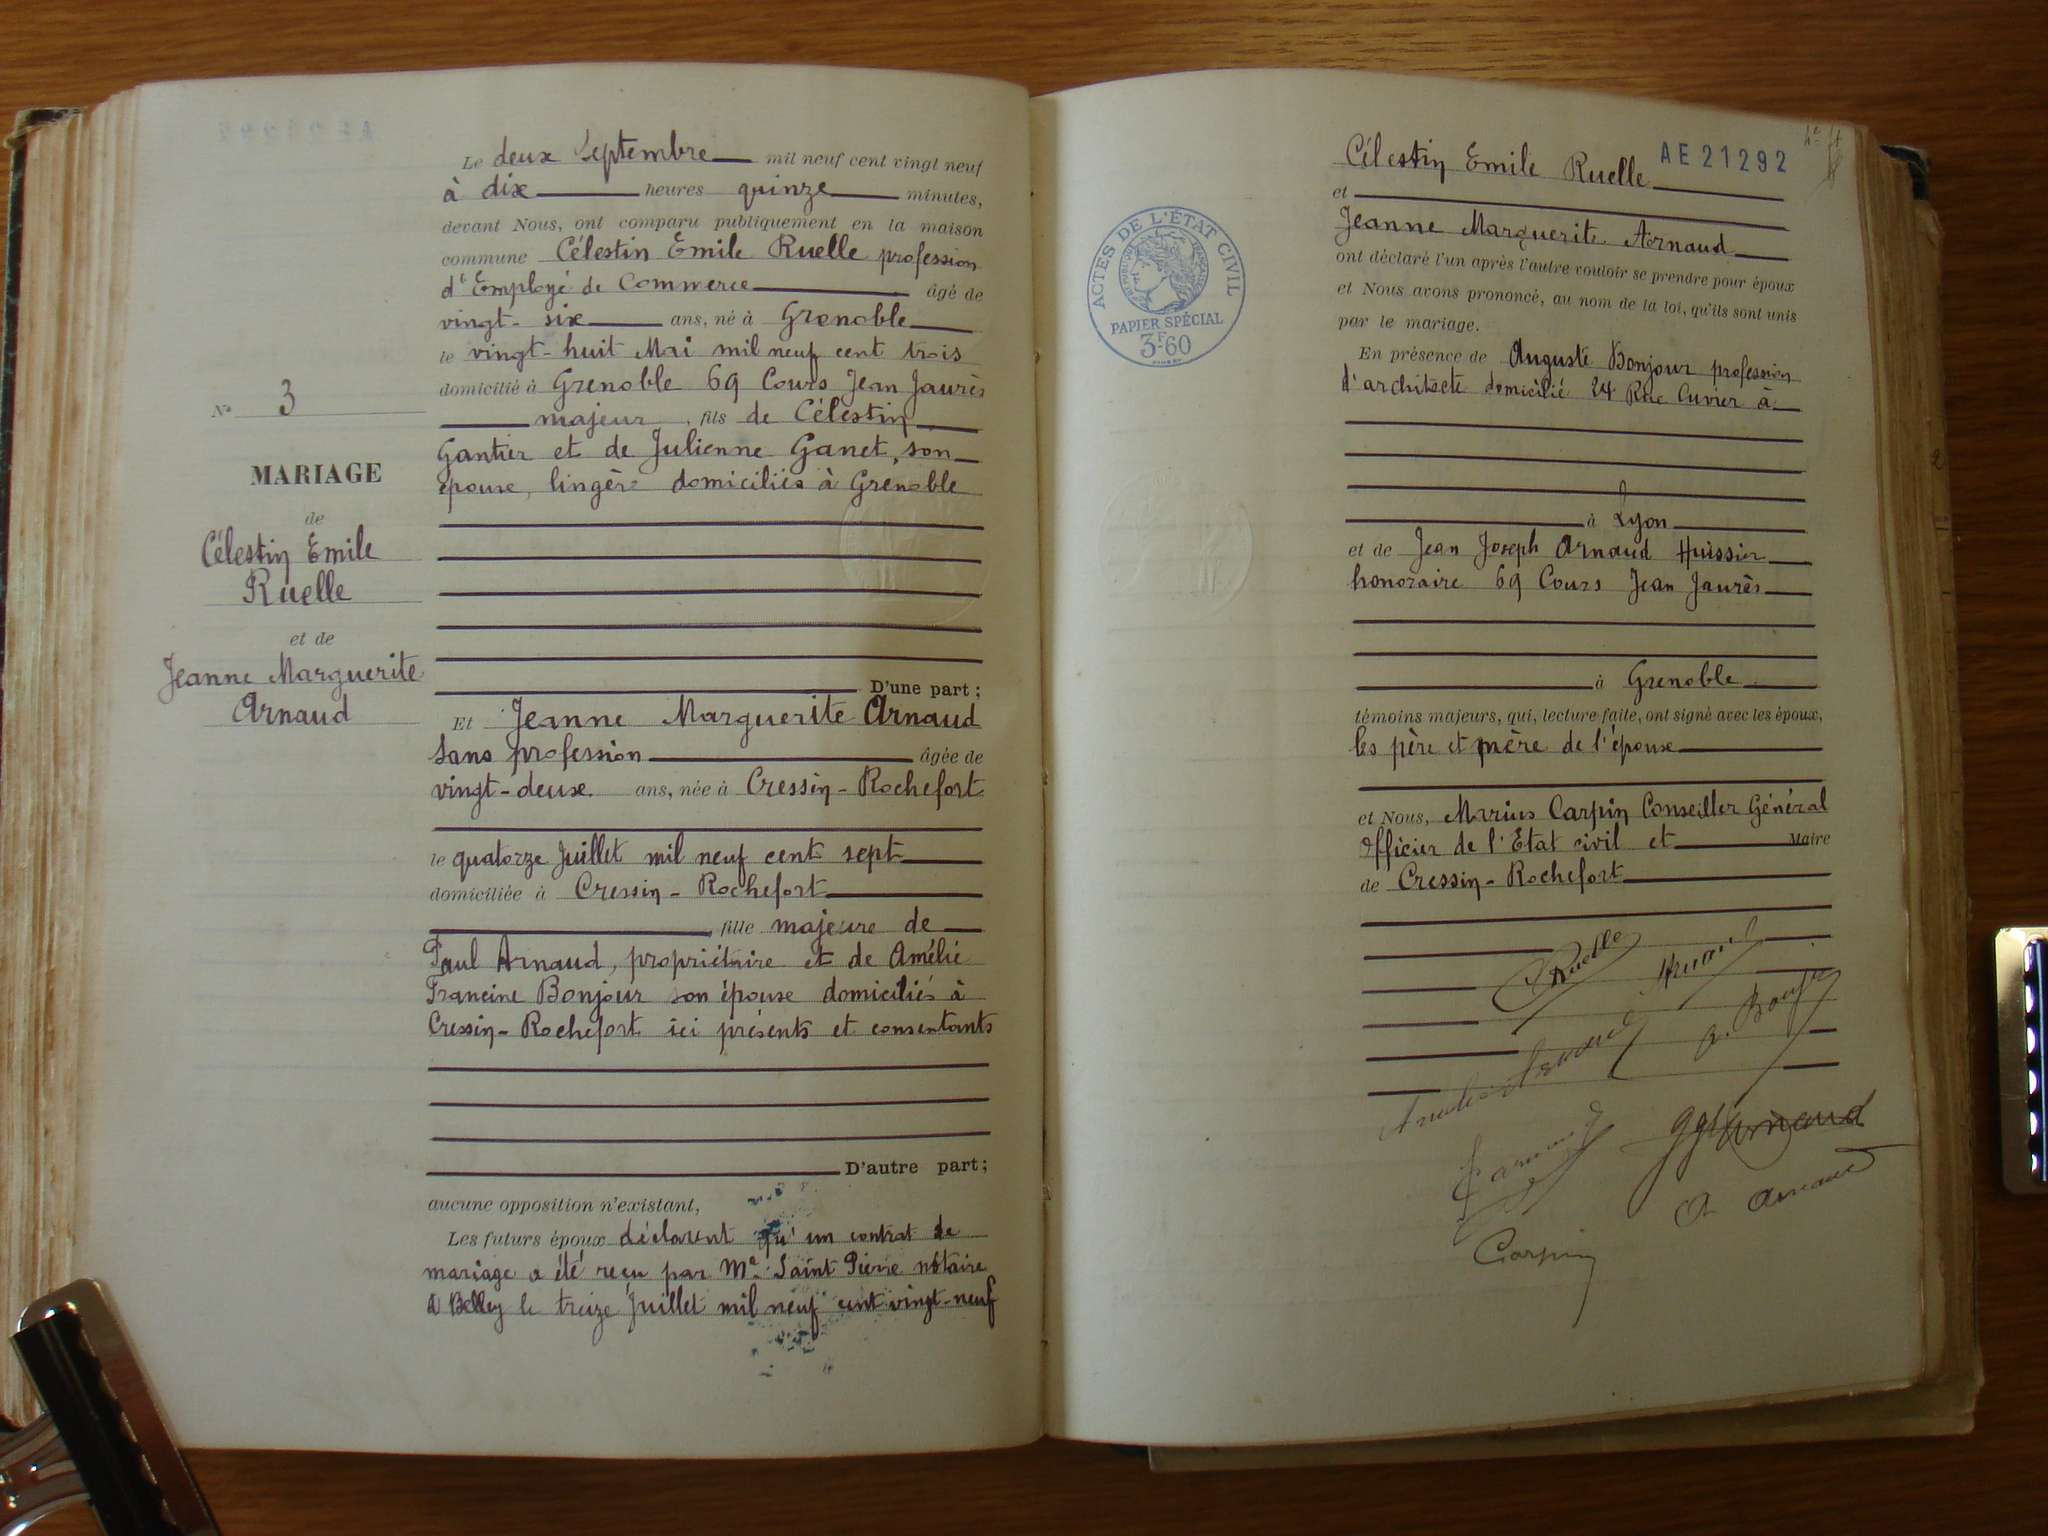 N° 3
MARIAGE
de
Célestin Emile
Ruelle
et de
Jeanne Marguerite
Arnaud
Le deux Septembre mil neuf cent vingt neuf
à dix heures quinze minutes,
devant Nous, ont comparu publiquement en la maison
commune Célestin Emile Ruelle profession
d'Employé de Commerce âgé de
vingt-six ans, né à Grenoble
le vingt-huit Mai mil neuf cent trois
domicilié à Grenoble 69 Cours Jean Jaurès
majeur, fils de Célestin
Gantier et de Julienne Ganet, son
épouse, lingère domiciliés à Grenoble
D'une part;
Et Jeanne Marguerite Arnaud
Sans profession âgée de
vingt-deux ans, née à Cressin-Rochefort
le quatorze Juillet mil neuf cent sept
domiciliée à Cressin-Rochefort
, fille majeure de
Paul Arnaud, propriétaire et de Amélie
Francine Bonjour son épouse domiciliés à
Cressin-Rochefort ici présents et consentants
D'autre part;
aucune opposition n'existant,
Les futurs époux déclarent qu'un contrat de
mariage a été reçu par Me Saint Pierre notaire
à Belley le treize Juillet mil neuf cent vingt-neuf
AE 21292
Célestin Emile Ruelle
et
Jeanne Marguerite Arnaud
ont déclaré l'un après l'autre vouloir se prendre pour époux
et Nous avons prononcé, au nom de la loi, qu'ils sont unis
par le mariage.
ACTES DE L'ÉTAT CIVIL
RÉPUBLIQUE FRANÇAISE
PAPIER SPÉCIAL
3F60
En présence de Auguste Bonjour profession
d'architecte domicilié 24 Rue Cuvier à
à Lyon
et de Jean Joseph Arnaud Huissier
honoraire 69 Cours Jean Jaurès
à Grenoble
témoins majeurs, qui, lecture faite, ont signé avec les époux,
les père et mère de l'épouse
et Nous, Marius Carpin Conseiller Général
Officier de l'Etat civil et Maire
de Cressin-Rochefort
Ruelle Arnaud
Arnaud A. Bonjour
Arnaud
A Arnaud
Carpin